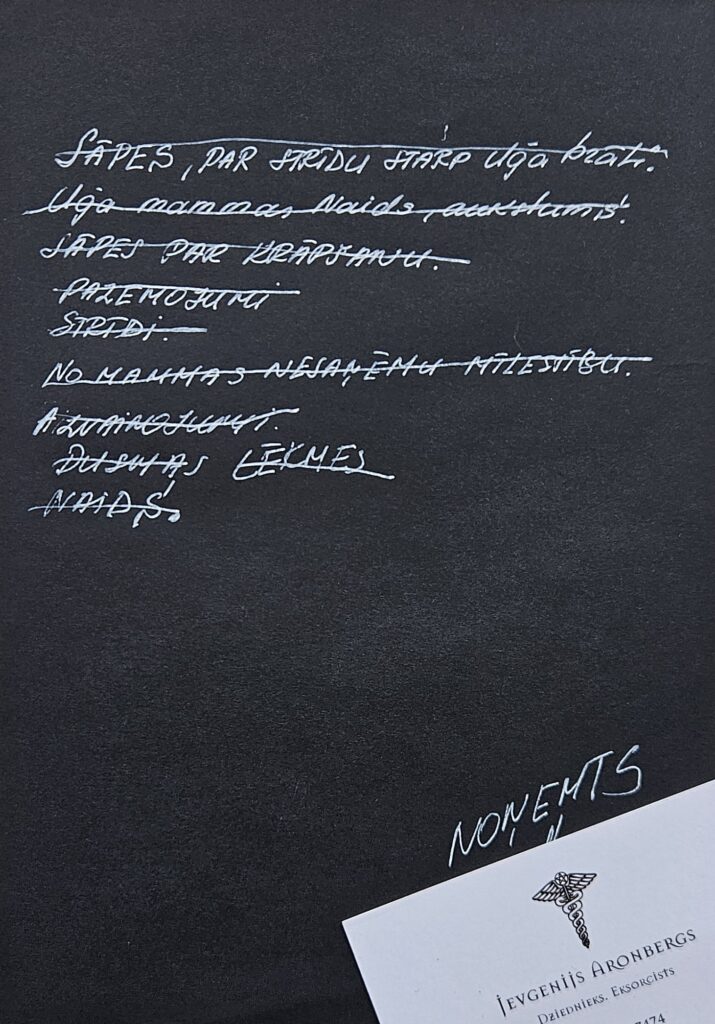 SĀPES, PAR STRĪDU STARP Uģa brāli.
Uģa mammas Naids, aukstums.
SĀPES PAR KRĀPŠANU.
PAZEMOJUMI
STRĪDI.
NO MAMMAS NESAŅĒMU MĪLESTĪBU.
AIZVAINOJUMI.
DUSMAS LĒKMES
NAIDS.
NOŅEMTS
JEVGENIJS ARONBERGS
DZIEDNIEKS, EKSORCISTS
7474